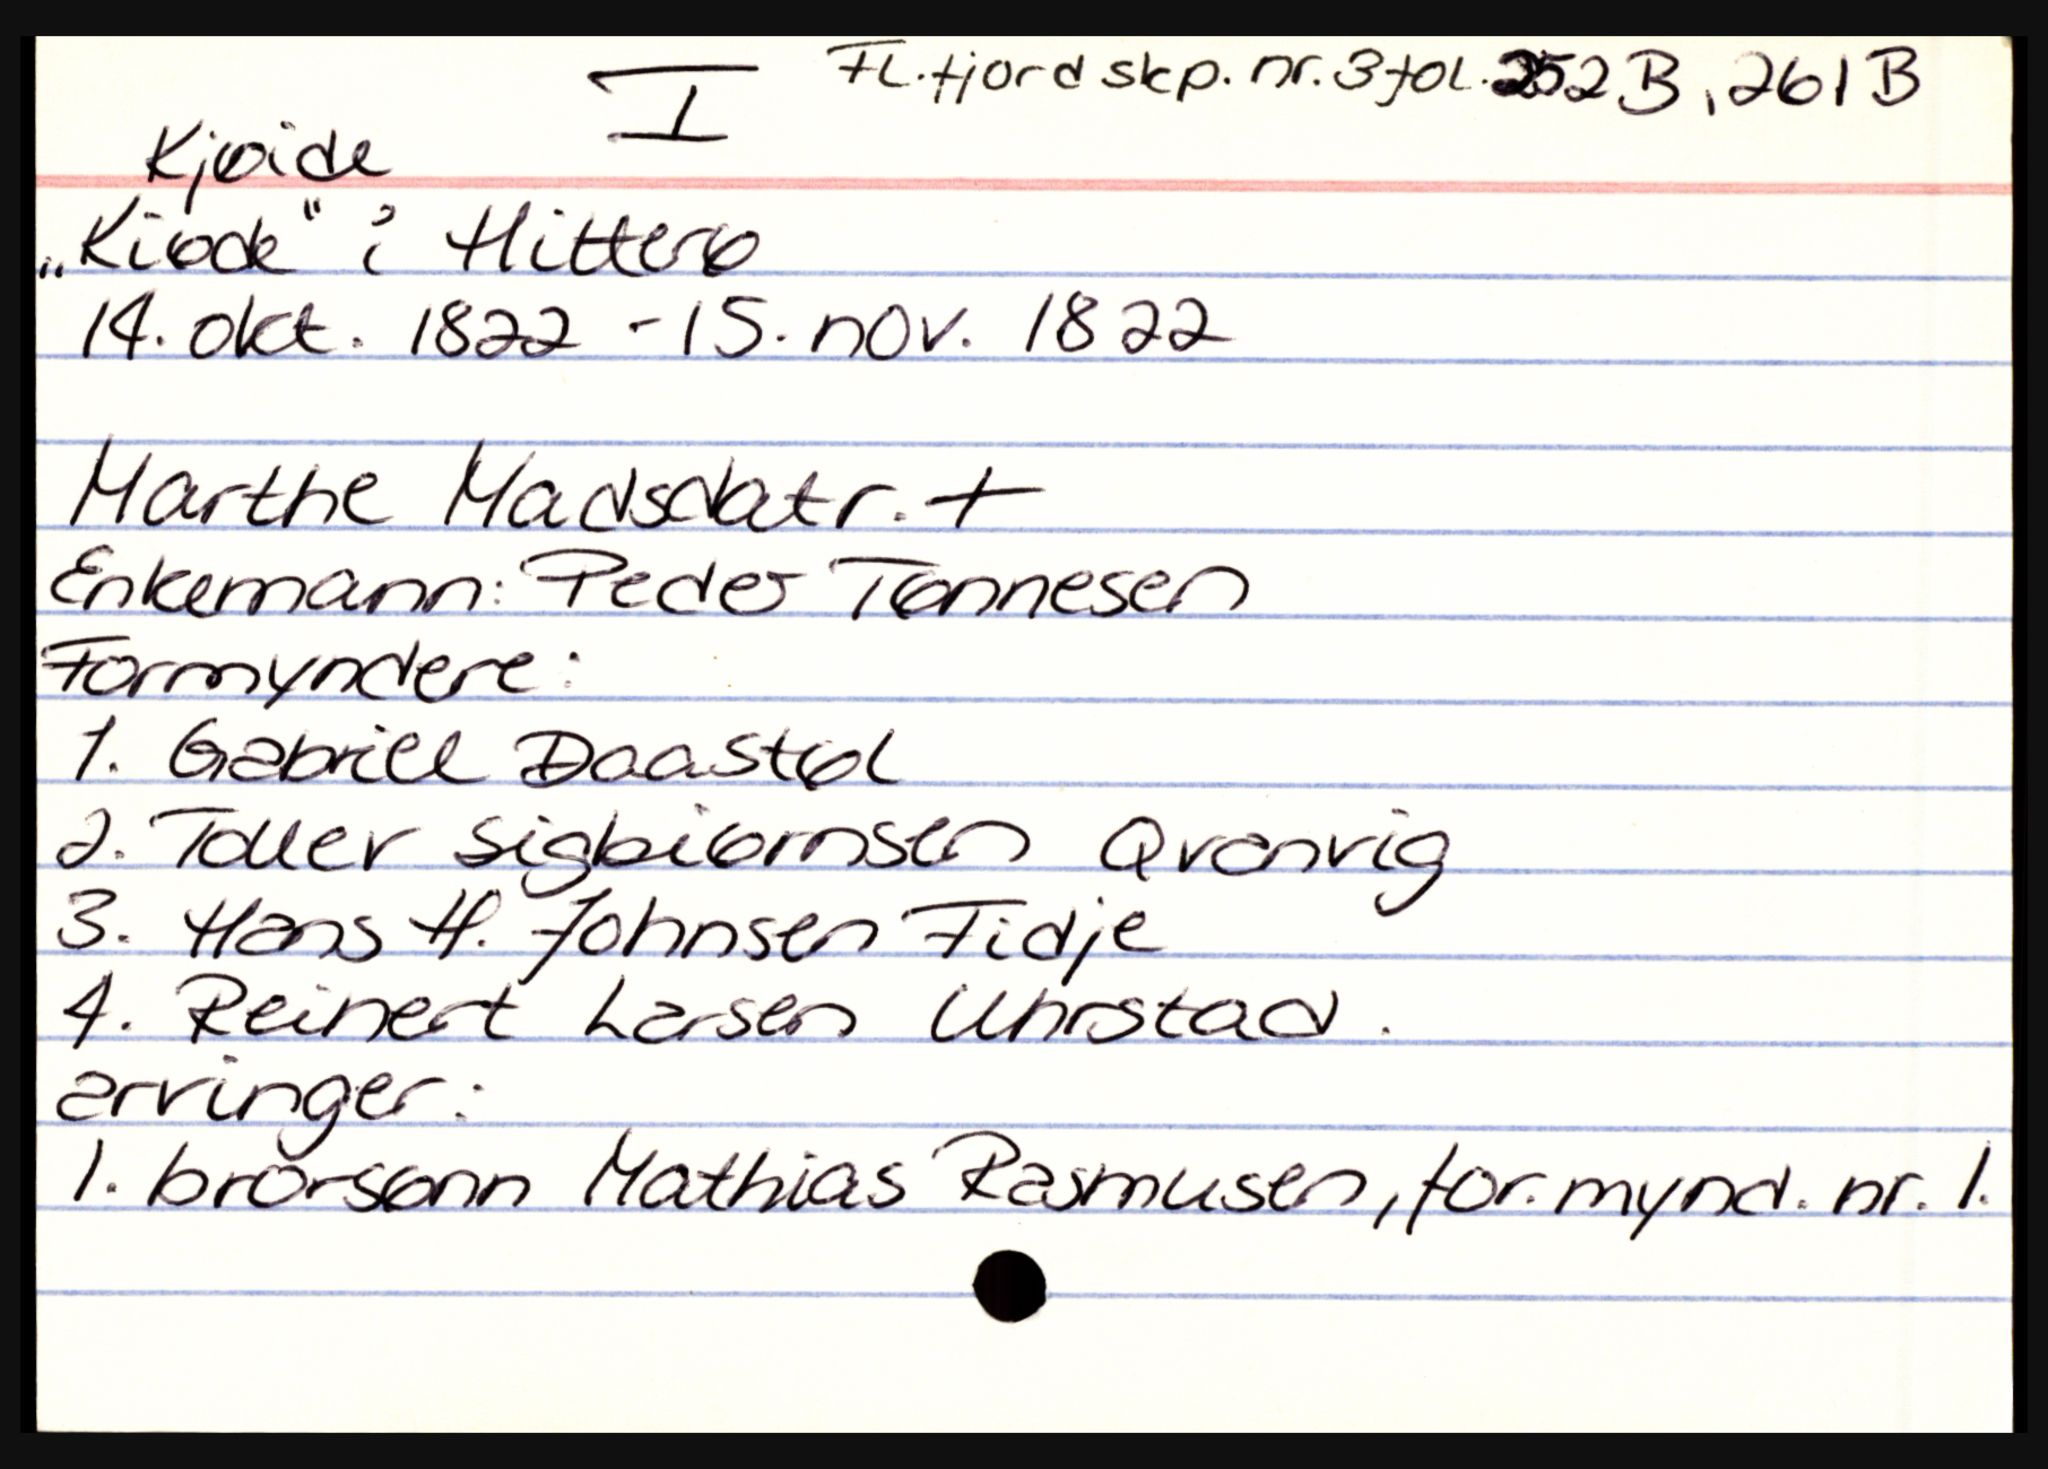 I Fl.fjord skp. nr. 3 fol. 252B, 261B
Kjøide
„Kiøde" i Hitterø
14. okt. 1822 - 15. nov. 1822
Marthe Madsdatr. +
Enkemann: Peder Tønnesen
Formyndere:
1. Gabriel Daastøl
2. Toller Sigbiørnsen Qvanvig
3. Hans H. Johnsen Fidje
4. Reinert Larsen Uhrstad.
arvinger:
1. brorsønn Mathias Rasmusen, for.mynd. nr. 1.